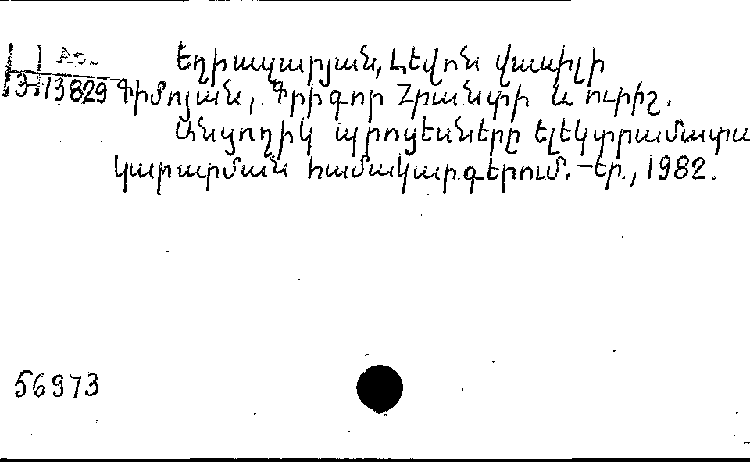 Եղիազարյան, Լևոն Վասիլի
3113829 Գիմոյան, Գրիգոր Հրանտի և ուրիշ.
Անցողիկ պրոցեսները էլեկտրամատա
կարարման համակարգերում. – Եր., 1982.
56973